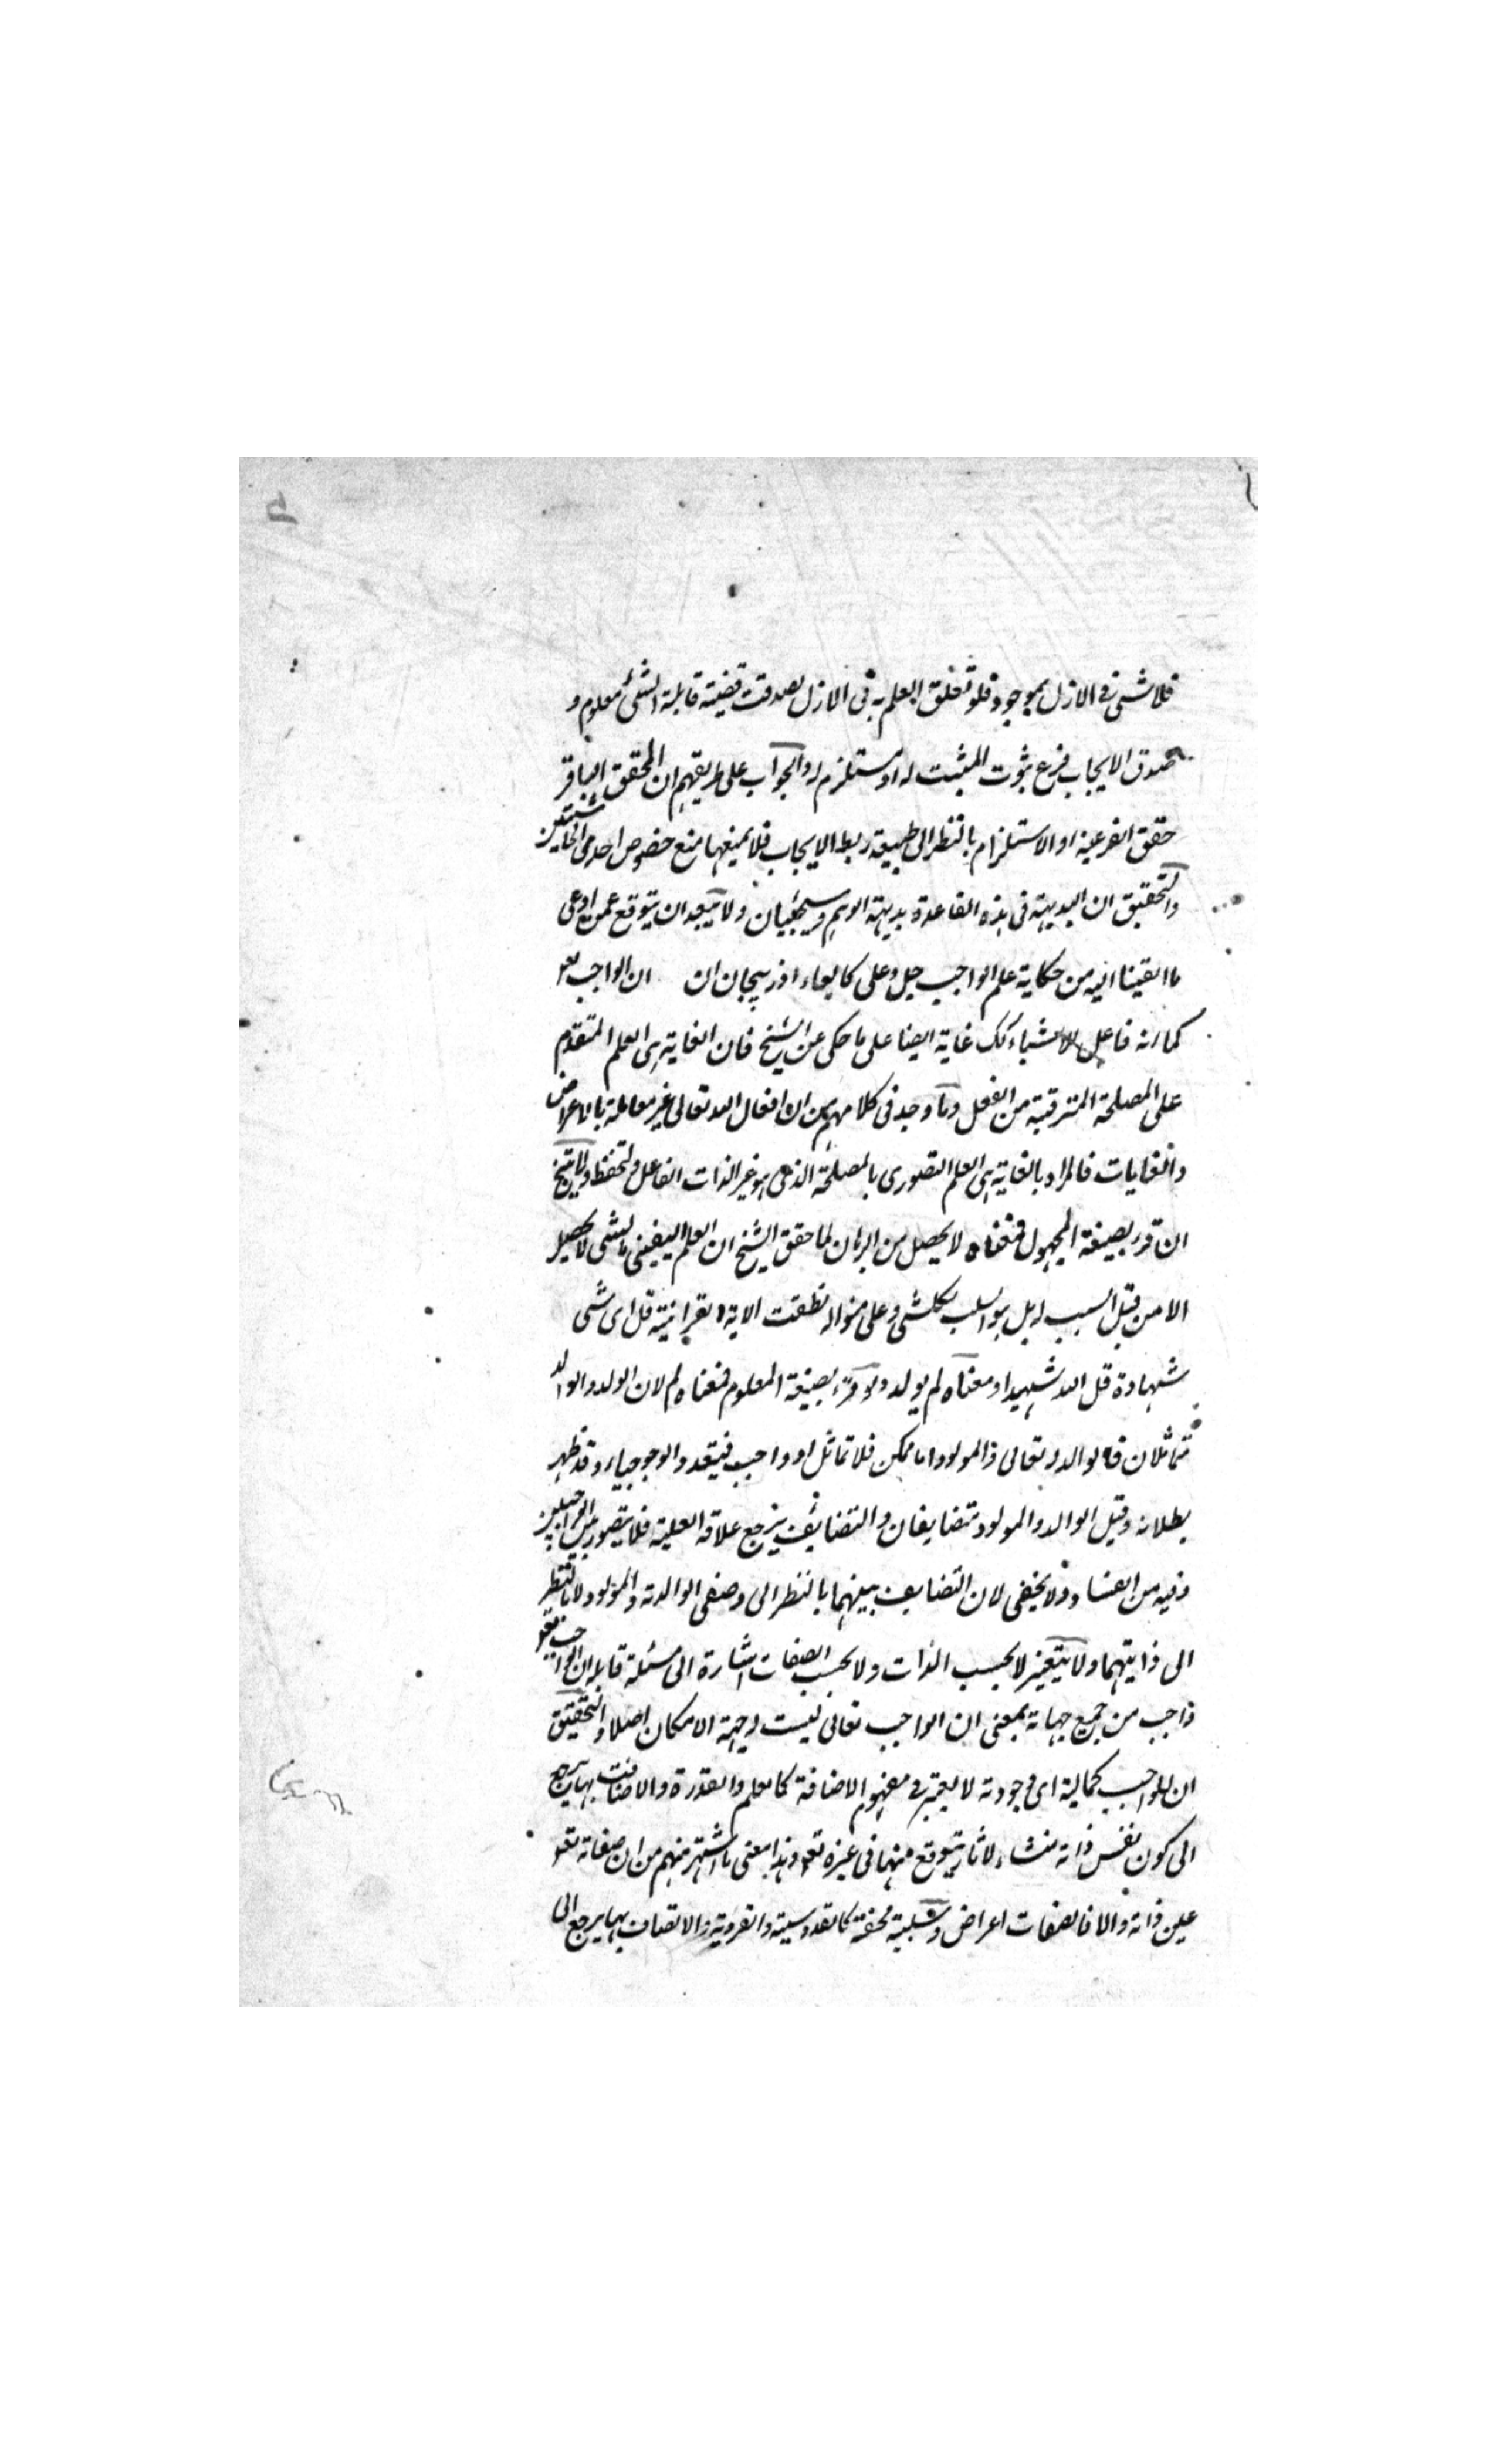 فلا شئ فى الازل بموجود فلو تعلق العلم به فى الازل لصدقت قضية قابلة الشئ معلوم و
صدق الايجاب فرع ثبوت المثبت له او مستلزم له والجواب على طريقهم ان المحقق الباقر
حقق الفرعية او الاستلزام بالنظر الى طبيعة ربط الايجاب فلا يمنعها منع خصوص احدى الحاشيتين
والتحقيق ان البديهة فى هذه القاعدة بديهة الوهم وسيجئ بيان ولا يتجه ان يتوقع عمن ادعى
ما القينا اليه من حكاية علم الواجب جل وعلى ان ان الواجب تعو
كما انه فاعل للاشياء كك غاية ايضا على ما حكى عن الشيخ فان الغاية هى العلم المتقدم
على المصلحة المترتبة من الفعل وما وجد فى كلامهم من ان افعال الله تعالى غير معللة بالاعراض
والغايات فالمراد بالغاية هى العلم التصورى بالمصلحة الذى هو غير الذات الفاعل فتحفظ ولا ينتج
ان قرء بصيغة المجهول فمعناه لا يحصل من البرهان لما حقق الشيخ ان العلم اليقينى بالشى لا يحصل
الا من قبل السبب له بل هو السبب لكل شى وعلى منواله نطقت الاية القرانية قل اى شى
شهادة قل الله شهيد او معناه لم يولد ولو قرء بصيغة المعلوم فمعناه لم لان الولد والوالد
متماثلان فالمولود اما ممكن فلا تماثل او واجب فيتعدد الوجوب وقد ظهر
بطلانه وقيل الوالد والمولود متضايفان والتضايف يرجع علاقة العلية فلا يتصور بين الواجبين
وفيه من الفساد ولا يخفى لان التضايف بينهما بالنظر الى وصفى الوالدية والمولود لا بالنظر
الى ذاتيتهما ولا يتغير لا بحسب الذات ولا بحسب الصفات اشارة الى مسئلة قابلة ان الواجب تعو
واجب من جميع جهاته بمعنى ان الواجب تعالى ليست له جهة الامكان اصلا والتحقيق
ان للواجب كمالية اى وجودية لا يعتبر فى مفهوم الاضافة كالعلم والقدرة والاتصاف بها يرجع
الى كون نفس ذاته منشاء لاثار يتوقع منها فى غيره تعو وهذا معنى ما اشتهر منهم من ان صفاته تعو
عين ذاته والا فالصفات اعراض وسلبية محضة كالقدوسية والفردية والاتصاف بها يرجع الى